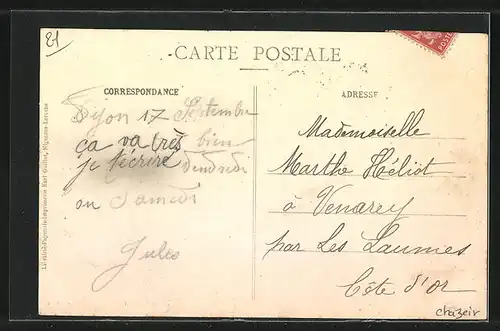 21
CARTE POSTALE
CORRESPONDANCE
Dijon 17 Septembre
ça va très bien
je t'écrire Vendredi
ou Samedi
Jules
ADRESSE
Mademoiselle
Marthe Héliot
à Venarey
par Les Laumes
Côte d'Or
chazeir